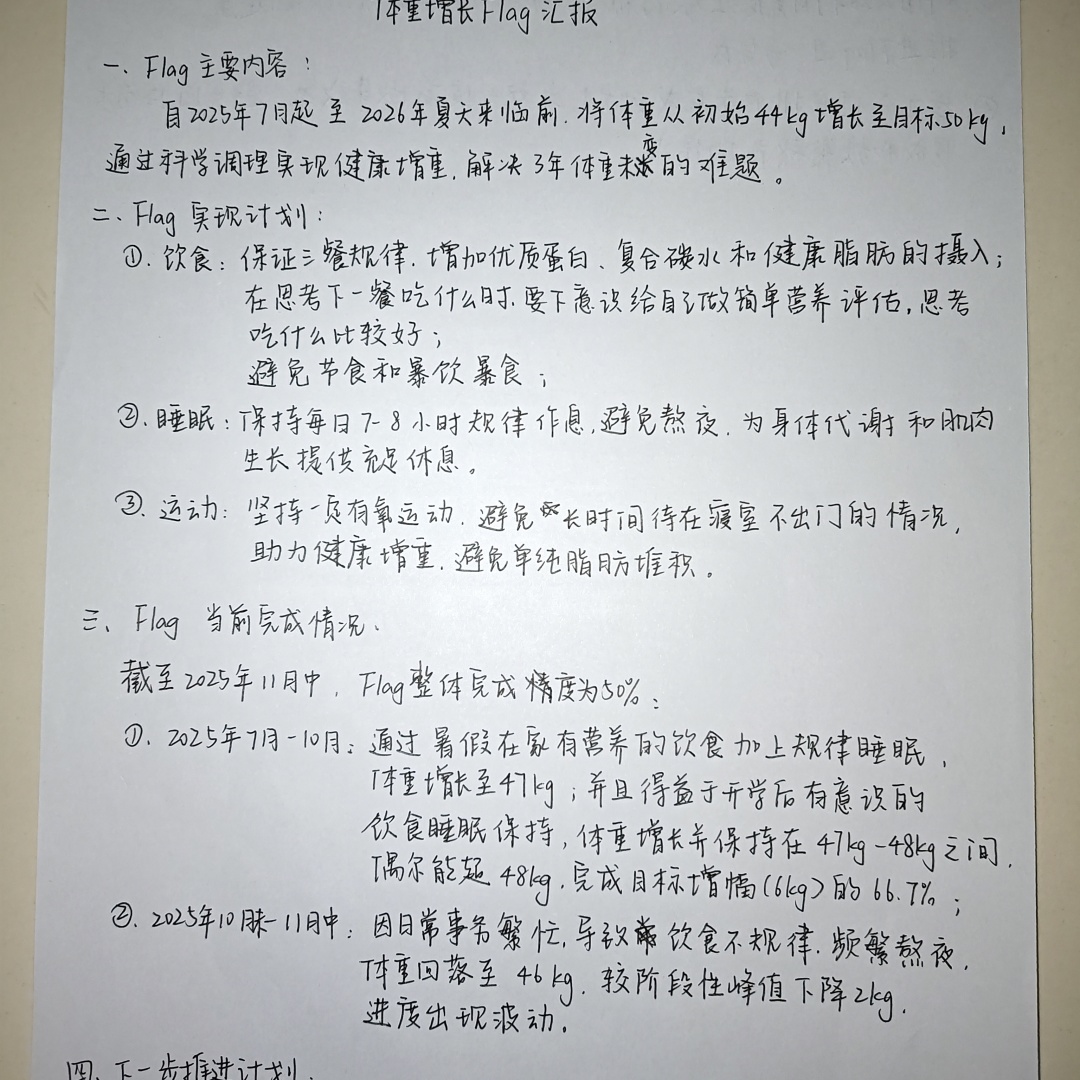 体重增长Flag汇报
一、Flag主要内容：
自2025年7月起至2026年夏天来临前，将体重从初始44kg增长至目标50kg，
通过科学调理实现健康增重，解决3年体重未变的难题。
二、Flag实现计划：
①. 饮食：保证三餐规律，增加优质蛋白、复合碳水和健康脂肪的摄入；
在思考下一餐吃什么时，要下意识给自己做简单营养评估，思考
吃什么比较好；
避免节食和暴饮暴食；
②. 睡眠：保持每日7-8小时规律作息，避免熬夜，为身体代谢和肌肉
生长提供充足休息。
③. 运动：坚持一定有氧运动，避免长时间待在寝室不出门的情况，
助力健康增重，避免单纯脂肪堆积。
三、Flag 当前完成情况、
截至2025年11月中，Flag整体完成精度为50%：
①. 2025年7月-10月：通过暑假在家有营养的饮食加上规律睡眠，
体重增长至47kg；并且得益于开学后有意识的
饮食睡眠保持，体重增长并保持在47kg-48kg之间，
偶尔能超48kg，完成目标增幅(6kg)的66.7%；
②. 2025年10月末-11月中：因日常事务繁忙，导致饮食不规律，频繁熬夜，
体重回落至46kg，较阶段性峰值下降2kg，
进度出现波动。
四、下一步推进计划、